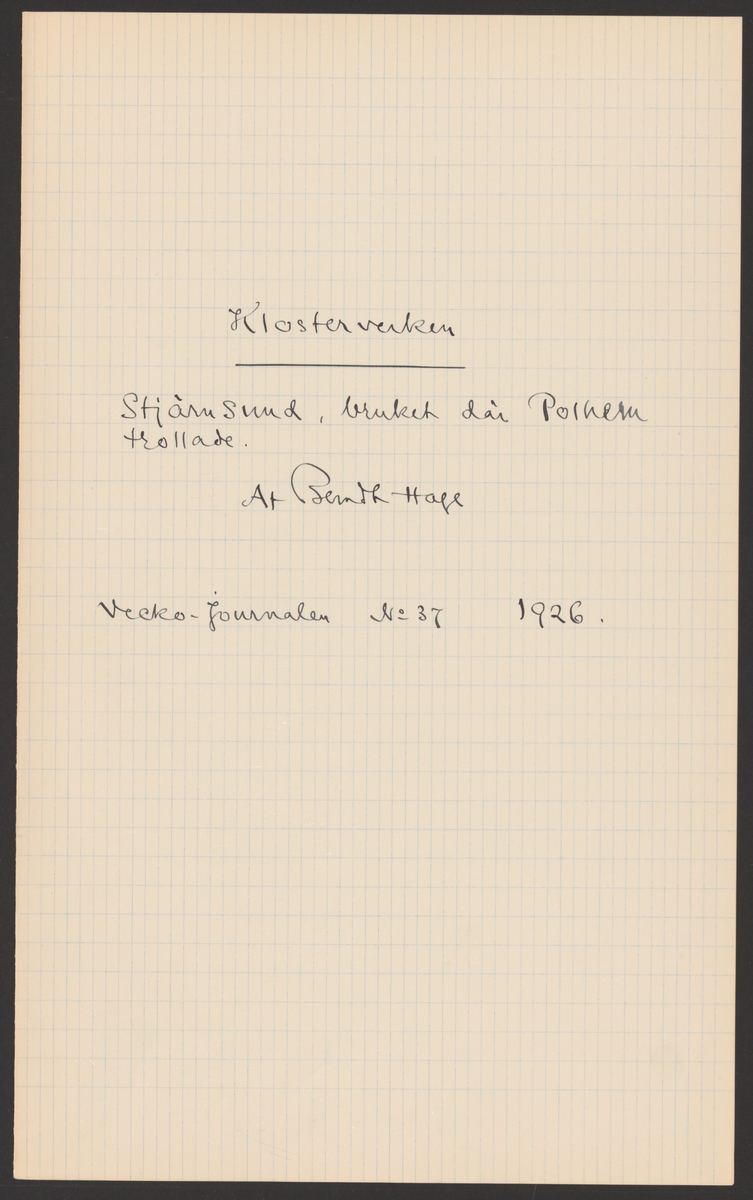 Klosterverken
Stjärnsund, bruket där Polhem
trollade.
Af Berndt Hage
Vecko-Journalen No 37 1926.